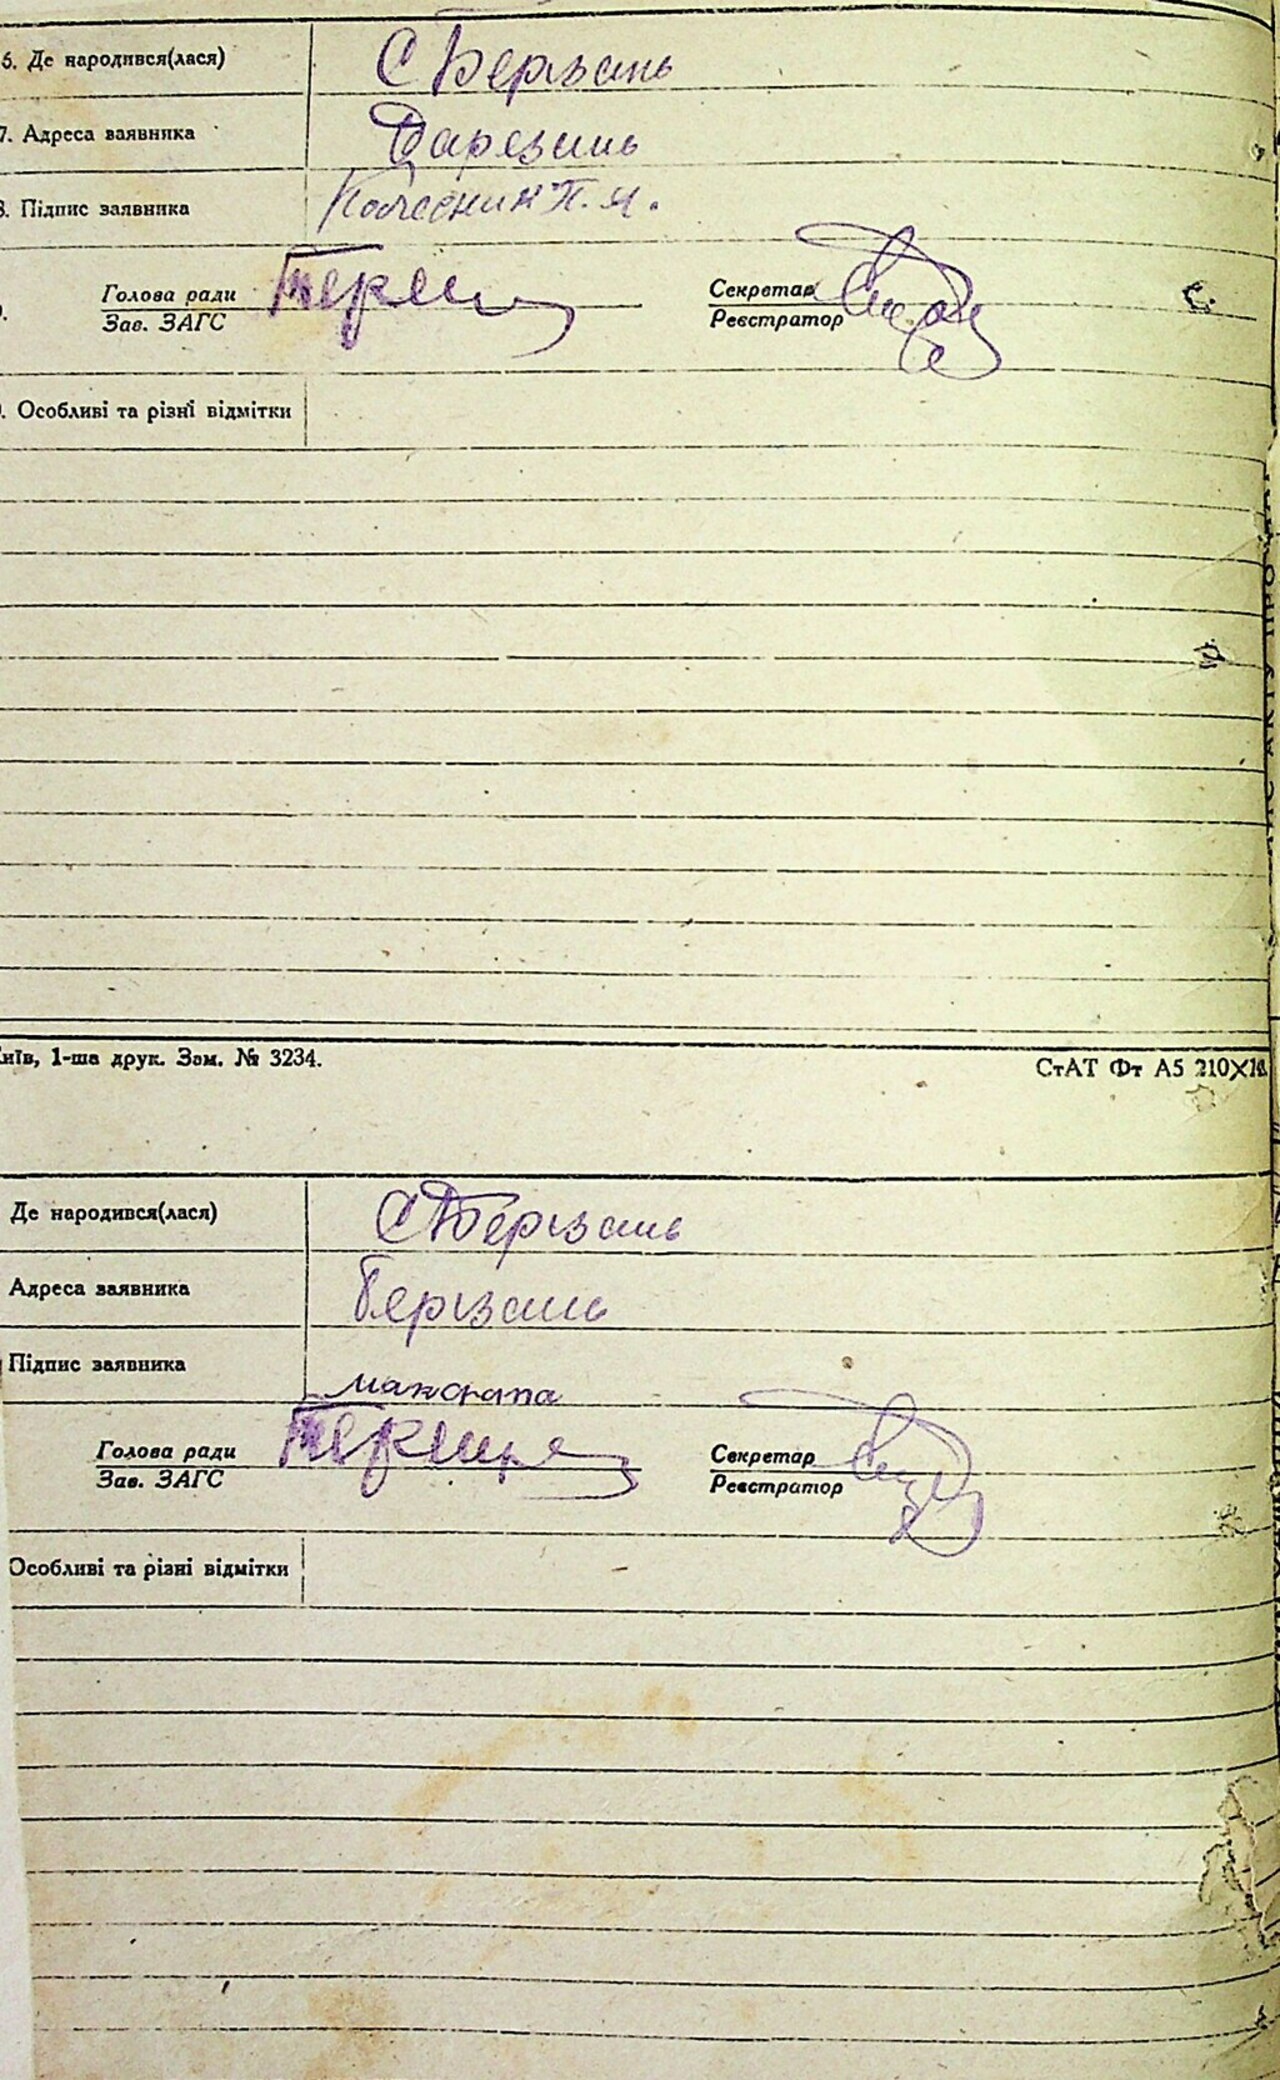 6. Де народився(лася) С Берзань
7. Адреса заявника Барезань
8. Підпис заявника Колесник П. Я.
Голова ради Секретар
Зав. ЗАГС Реєстратор
Особливі та різні відмітки
Київ, 1-ша друк. Зам. № 3234. СтАТ Фт А5 210X
Де народився(лася) С Берзань
Адреса заявника Берзань
Підпис заявника
Голова ради Секретар
Зав. ЗАГС Реєстратор
Особливі та різні відмітки